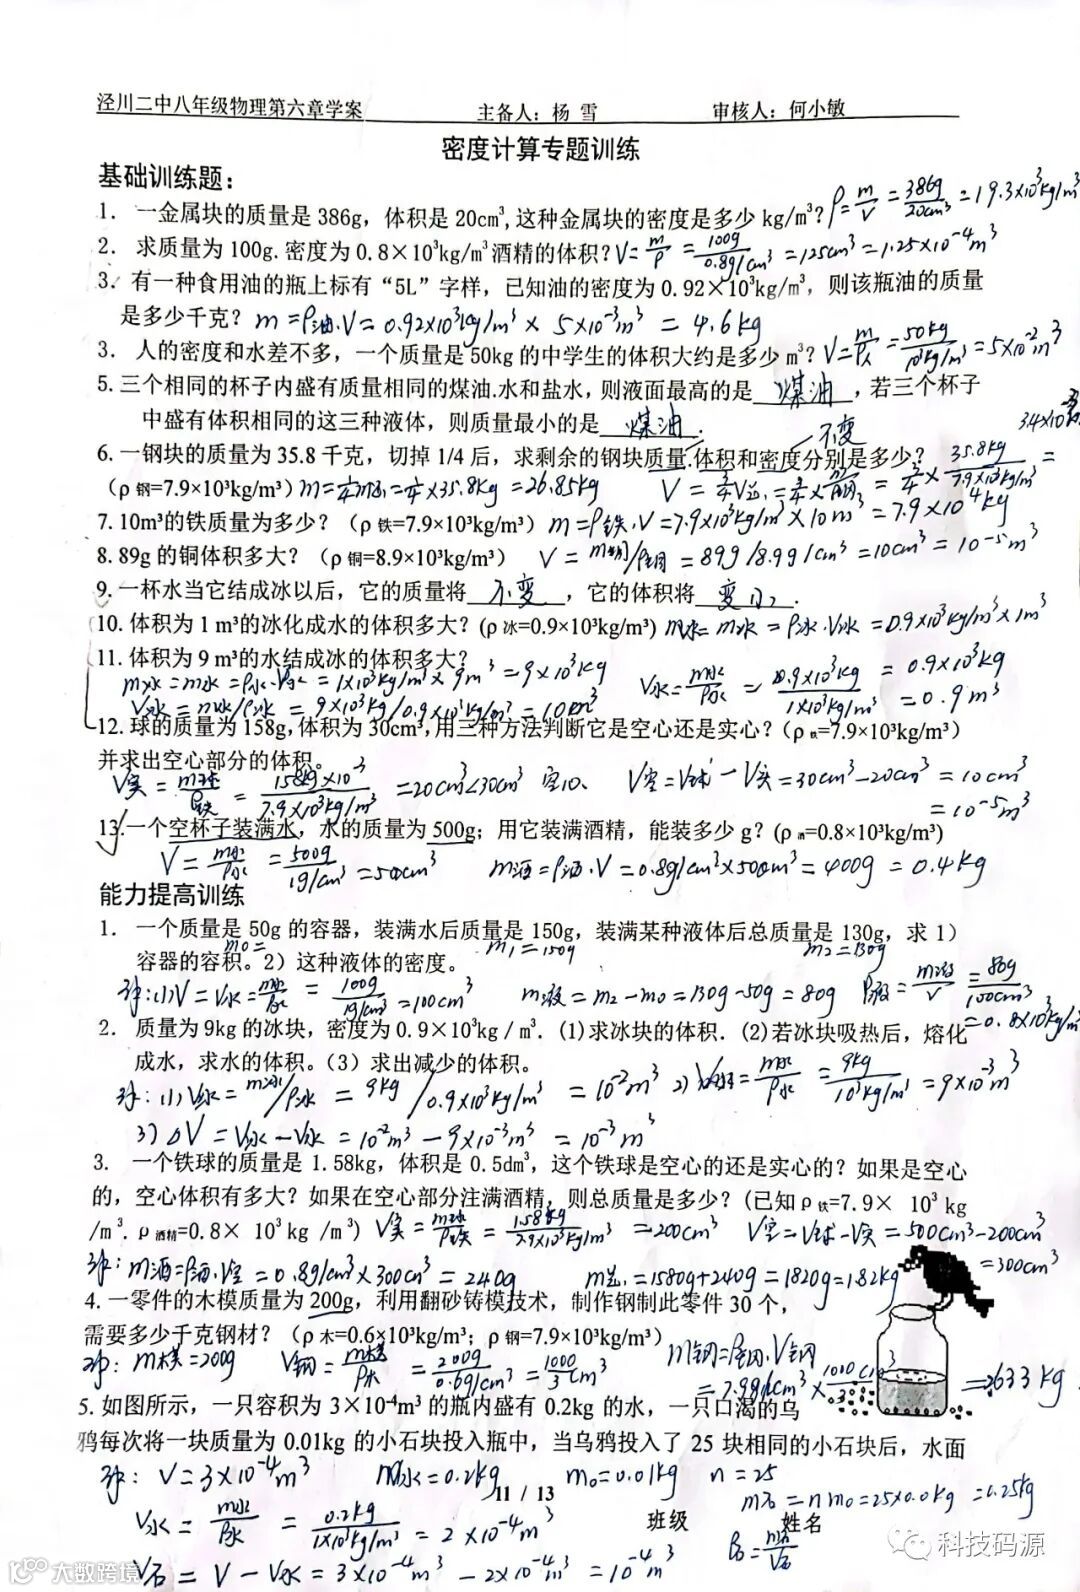 泾川二中八年级物理第六章学案 主备人：杨 雪 审核人：何小敏
密度计算专题训练
基础训练题：
1． 一金属块的质量是 386g，体积是 20cm³,这种金属块的密度是多少 kg/m³? ρ=m/V=386g/20cm³=19.3×10³kg/m³
2． 求质量为 100g.密度为 0.8×10³kg/m³ 酒精的体积? V=m/ρ=100g/0.8g/cm³=125cm³=1.25×10⁻⁴m³
3．有一种食用油的瓶上标有“5L”字样，已知油的密度为 0.92×10³kg/m³，则该瓶油的质量
是多少千克? m=ρ油.V=0.92×10³kg/m³×5×10⁻³m³=4.6kg
3． 人的密度和水差不多，一个质量是 50kg 的中学生的体积大约是多少 m³? V=m/ρ人=50kg/10³kg/m³=5×10⁻²m³
5.三个相同的杯子内盛有质量相同的煤油.水和盐水，则液面最高的是 煤油 ，若三个杯子
中盛有体积相同的这三种液体，则质量最小的是 煤油 .
不变
6.一钢块的质量为 35.8 千克，切掉 1/4 后，求剩余的钢块质量.体积和密度分别是多少?
（ρ钢=7.9×10³kg/m³）
7.10m³的铁质量为多少? （ρ铁=7.9×10³kg/m³）m=ρ铁.V=7.9×10³kg/m³×10m³=7.9×10⁴kg
8.89g 的铜体积多大? （ρ铜=8.9×10³kg/m³） V=m铜/ρ铜=89g/8.9g/cm³=10cm³=10⁻⁵m³
9.一杯水当它结成冰以后，它的质量将 不变 ，它的体积将 变小 .
10.体积为 1 m³的冰化成水的体积多大? (ρ冰=0.9×10³kg/m³) m水=m冰=ρ冰.V冰=0.9×10³kg/m³×1m³
=0.9×10³kg
11.体积为 9 m³的水结成冰的体积多大?
m冰=m水=ρ水.V水=1×10³kg/m³×9m³=9×10³kg V水=m水/ρ水=0.9×10³kg/1×10³kg/m³=0.9m³
V冰=m冰/ρ冰=9×10³kg/0.9×10³kg/m³=10m³
12.球的质量为 158g,体积为 30cm³,用三种方法判断它是空心还是实心? (ρ铁=7.9×10³kg/m³)
并求出空心部分的体积。
V实=m球/ρ铁=158kg×10⁻³/7.9×10³kg/m³=20cm³<30cm³ 空心、 V空=V球-V实=30cm³-20cm³=10cm³
=10⁻⁵m³
13.一个空杯子装满水，水的质量为 500g；用它装满酒精，能装多少 g? (ρ酒=0.8×10³kg/m³)
V=m水/ρ水=500g/1g/cm³=500cm³ m酒=ρ酒.V=0.8g/cm³×500cm³=400g=0.4kg
能力提高训练
1． 一个质量是 50g 的容器，装满水后质量是 150g，装满某种液体后总质量是 130g，求 1）
m₀= m₁=150g m₂=130g
容器的容积。2）这种液体的密度。
解:(1)V=V水=m水/ρ水=100g/1g/cm³=100cm³ m液=m₂-m₀=130g-50g=80g ρ液=m液/V=80g/100cm³
=0.8×10³kg/m³
2． 质量为 9kg 的冰块，密度为 0.9×10³kg／m³．(1)求冰块的体积．(2)若冰块吸热后，熔化
成水，求水的体积。（3）求出减少的体积。
解:(1)V冰=m冰/ρ冰=9kg/0.9×10³kg/m³=10⁻²m³ 2)V水=m水/ρ水=9kg/10³kg/m³=9×10⁻³m³
3)ΔV=V冰-V水=10⁻²m³-9×10⁻³m³=10⁻³m³
3． 一个铁球的质量是 1.58kg，体积是 0.5dm³，这个铁球是空心的还是实心的? 如果是空心
的，空心体积有多大? 如果在空心部分注满酒精，则总质量是多少? (已知ρ铁=7.9× 10³ kg
/m³．ρ酒精=0.8× 10³ kg /m³) V实=m球/ρ铁=1.58kg/7.9×10³kg/m³=200cm³ V空=V球-V实=500cm³-200cm³
=300cm³
解:m酒=ρ酒.V空=0.8g/cm³×300cm³=240g m总=1580g+240g=1820g=1.82kg
4.一零件的木模质量为 200g，利用翻砂铸模技术，制作钢制此零件 30 个，
需要多少千克钢材? （ρ木=0.6×10³kg/m³；ρ钢=7.9×10³kg/m³）
解:m模=200g V钢=m模/ρ木=200g/0.6g/cm³=1000/3cm³ m钢=ρ钢.V钢
=7.9g/cm³×1000/3cm³ =2.633kg
5.如图所示，一只容积为 3×10⁻⁴m³ 的瓶内盛有 0.2kg 的水，一只口渴的乌
鸦每次将一块质量为 0.01kg 的小石块投入瓶中，当乌鸦投入了 25 块相同的小石块后，水面
解: V=3×10⁻⁴m³ m水=0.2kg m₀=0.01kg n=25
11 / 13
m石=nm₀=25×0.01kg=0.25kg
V水=m水/ρ水=0.2kg/1×10³kg/m³=2×10⁻⁴m³
班级 姓名
V石=V-V水=3×10⁻⁴m³-2×10⁻⁴m³=10⁻⁴m³
ρ石=m石/V石
科技码源
大数跨境